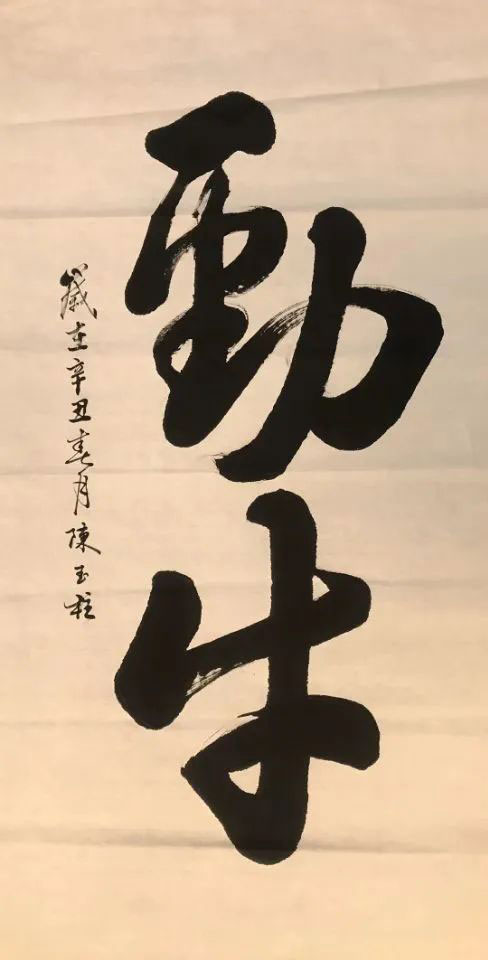 勁牛
歲在辛丑春月陳玉柱